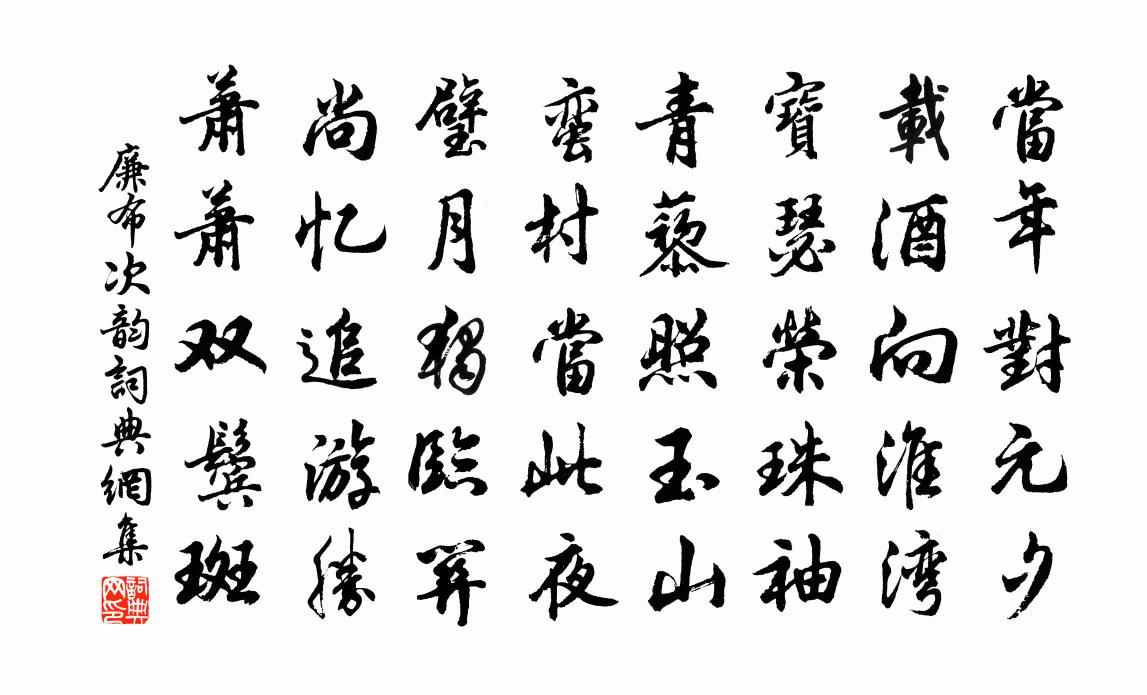 當年對元夕
載酒向淮湾
寶瑟榮珠袖
青藜照玉山
蛮村當此夜
璧月独臨關
尚忆追游勝
萧萧双鬓斑
廉布次韵詞典網集
詞典网印